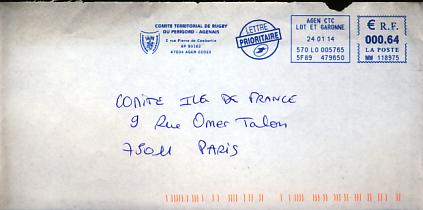 COMITE TERRITORIAL DE RUGBY
DU PERIGORD - AGENAIS
2 rue Pierre de Coubertin
BP 90163
LETTRE
PRIORITAIRE
AGEN CTC
LOT ET GARONNE
24 01 14
570 LO 005765
5F89 479650
€ R.F.
000,64
LA POSTE
MW 118975
COMITE ILE DE FRANCE
9 Rue Omer Talon
75011 PARIS